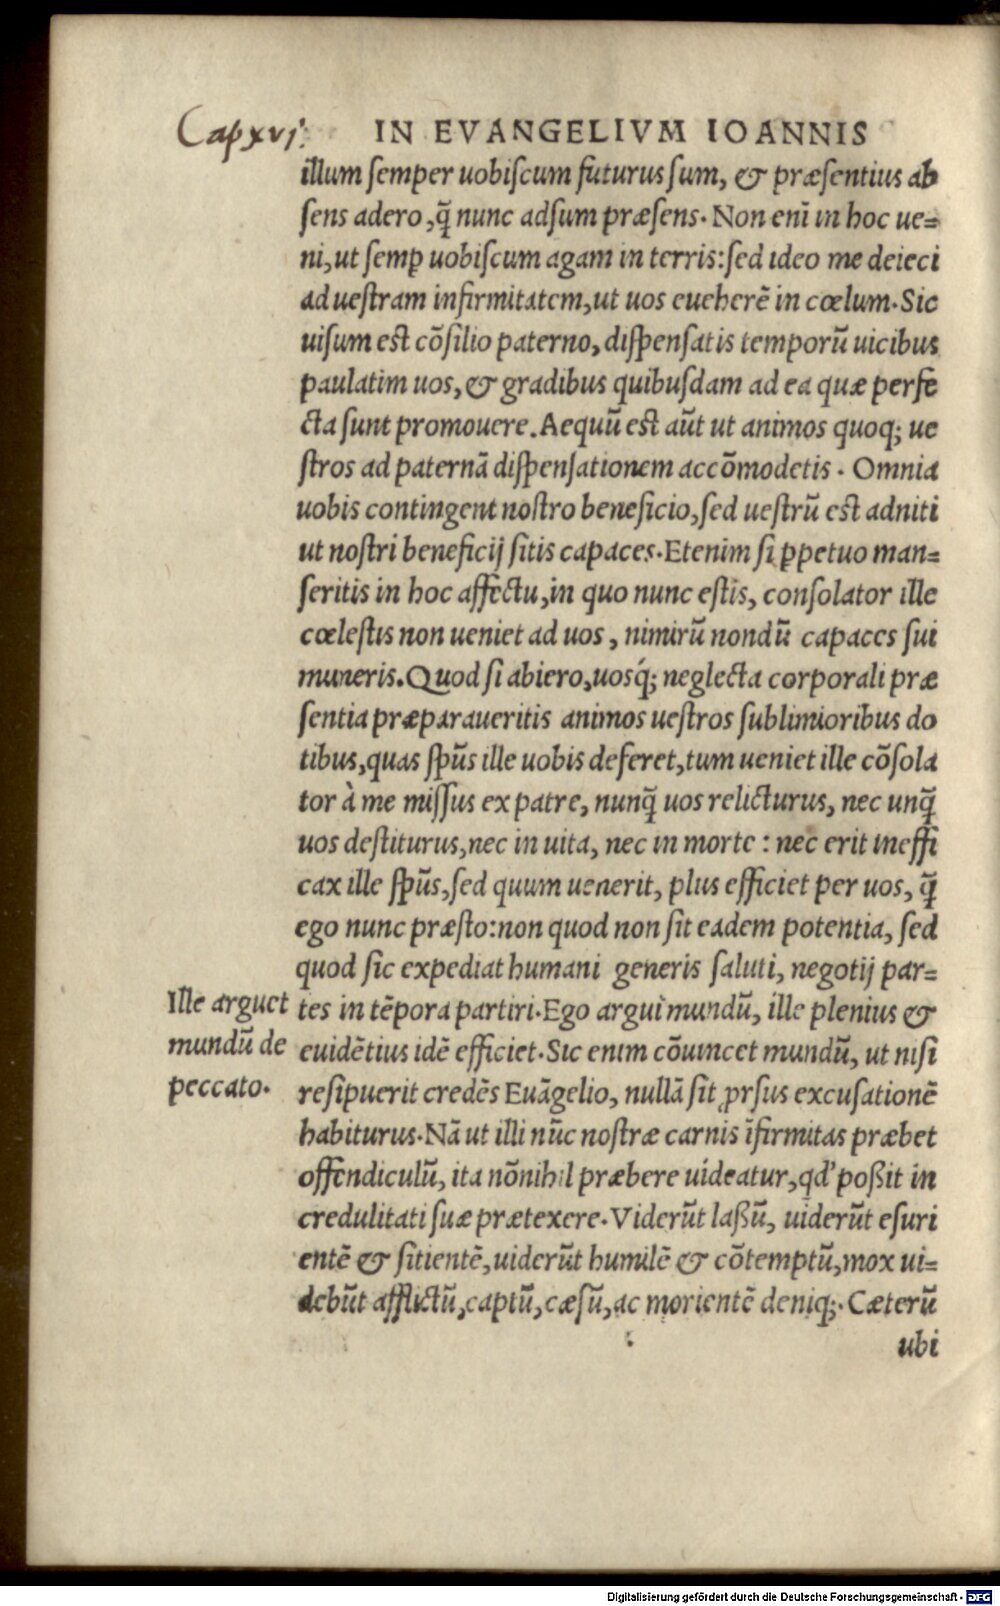 Cap xvj.
IN EVANGELIVM IOANNIS
illum semper uobiscum futurus sum, & præsentius ab
sens adero, q̄ nunc adsum præsens. Non enī in hoc ue=
ni, ut semꝑ uobiscum agam in terris: sed ideo me deieci
ad uestram infirmitatem, ut uos eueherē in cœlum. Sic
uisum est cōsilio paterno, dispensatis temporū uicibus
paulatim uos, & gradibus quibusdam ad ea quæ perfe
cta sunt promouere. Aequū est aūt ut animos quoq; ue
stros ad paternā dispensationem accōmodetis. Omnia
uobis contingent nostro beneficio, sed uestrū est adniti
ut nostri beneficij sitis capaces. Etenim si ꝑpetuo man=
seritis in hoc affectu, in quo nunc estis, consolator ille
cœlestis non ueniet ad uos, nimirū nondū capaces sui
muneris. Quod si abiero, uosq́; neglecta corporali præ
sentia præparaueritis animos uestros sublimioribus do
tibus, quas spūs ille uobis deferet, tum ueniet ille cōsola
tor à me missus ex patre, nunq̄ uos relicturus, nec unq̄
uos destiturus, nec in uita, nec in morte: nec erit ineffi
cax ille spūs, sed quum uenerit, plus efficiet per uos, q̄
ego nunc præsto: non quod non sit eadem potentia, sed
quod sic expediat humani generis saluti, negotij par=
tes in tēpora partiri. Ego argui mundū, ille plenius &
euidētius idē efficiet. Sic enim cōuincet mundū, ut nisi
resipuerit credēs Euāgelio, nullā sit ꝓrsus excusationē
habiturus. Nā ut illi nūc nostræ carnis īfirmitas præbet
offendiculū, ita nōnihil præbere uideatur, qd' poßit in
credulitati suæ prætexere. Viderūt laßū, uiderūt esuri
entē & sitientē, uiderūt humilē & cōtemptū, mox ui=
debūt afflictū, captū, cæsū, ac morientē deniq;. Cæterū
ubi
Ille arguet
mundū de
peccato.
Digitalisierung gefördert durch die Deutsche Forschungsgemeinschaft - DFG